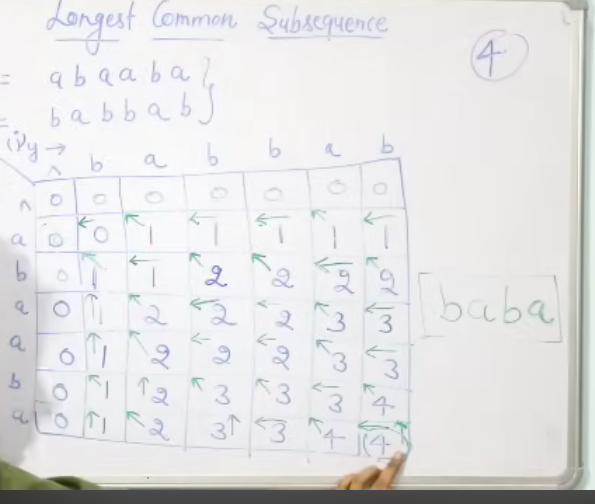 Longest Common Subsequence
4
= a b a a b a }
= b a b b a b }
(i) y →
^ b a b b a b
^ 0 0 0 0 0 0 0
a 0 ← 0 ↖ 1 ← 1 ← 1 ↖ 1 ← 1
b 0 ↖ 1 ← 1 ↖ 2 ↖ 2 ← 2 ↖ 2
a 0 ↑ 1 ↖ 2 ← 2 ← 2 ↖ 3 ← 3
a 0 ↑ 1 ↖ 2 ← 2 ← 2 ↖ 3 ← 3
b 0 ↖ 1 ↑ 2 ↖ 3 ↖ 3 ← 3 ↖ 4
a 0 ↑ 1 ↖ 2 3 ↑ ← 3 ↖ 4 ← (4 ↑
[baba]